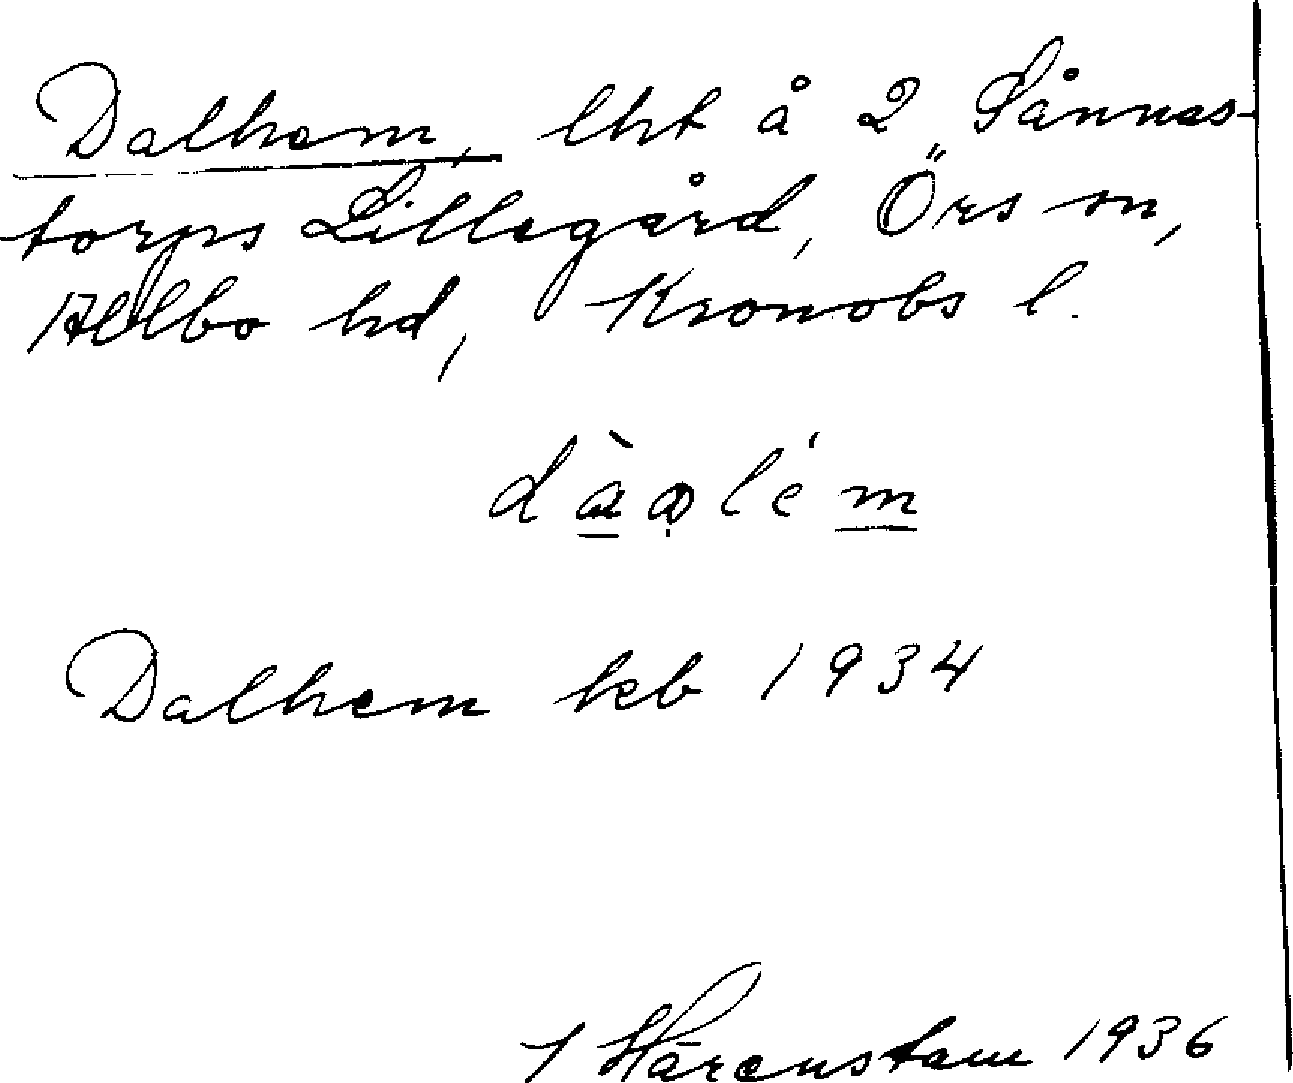 Dalhem, lht å 2 Sånnas-
torps Lillegård, Örs sn,
Allbo hd, Kronobs l.
dàɑlém
Dalhem kb 1934
Härenstam 1936